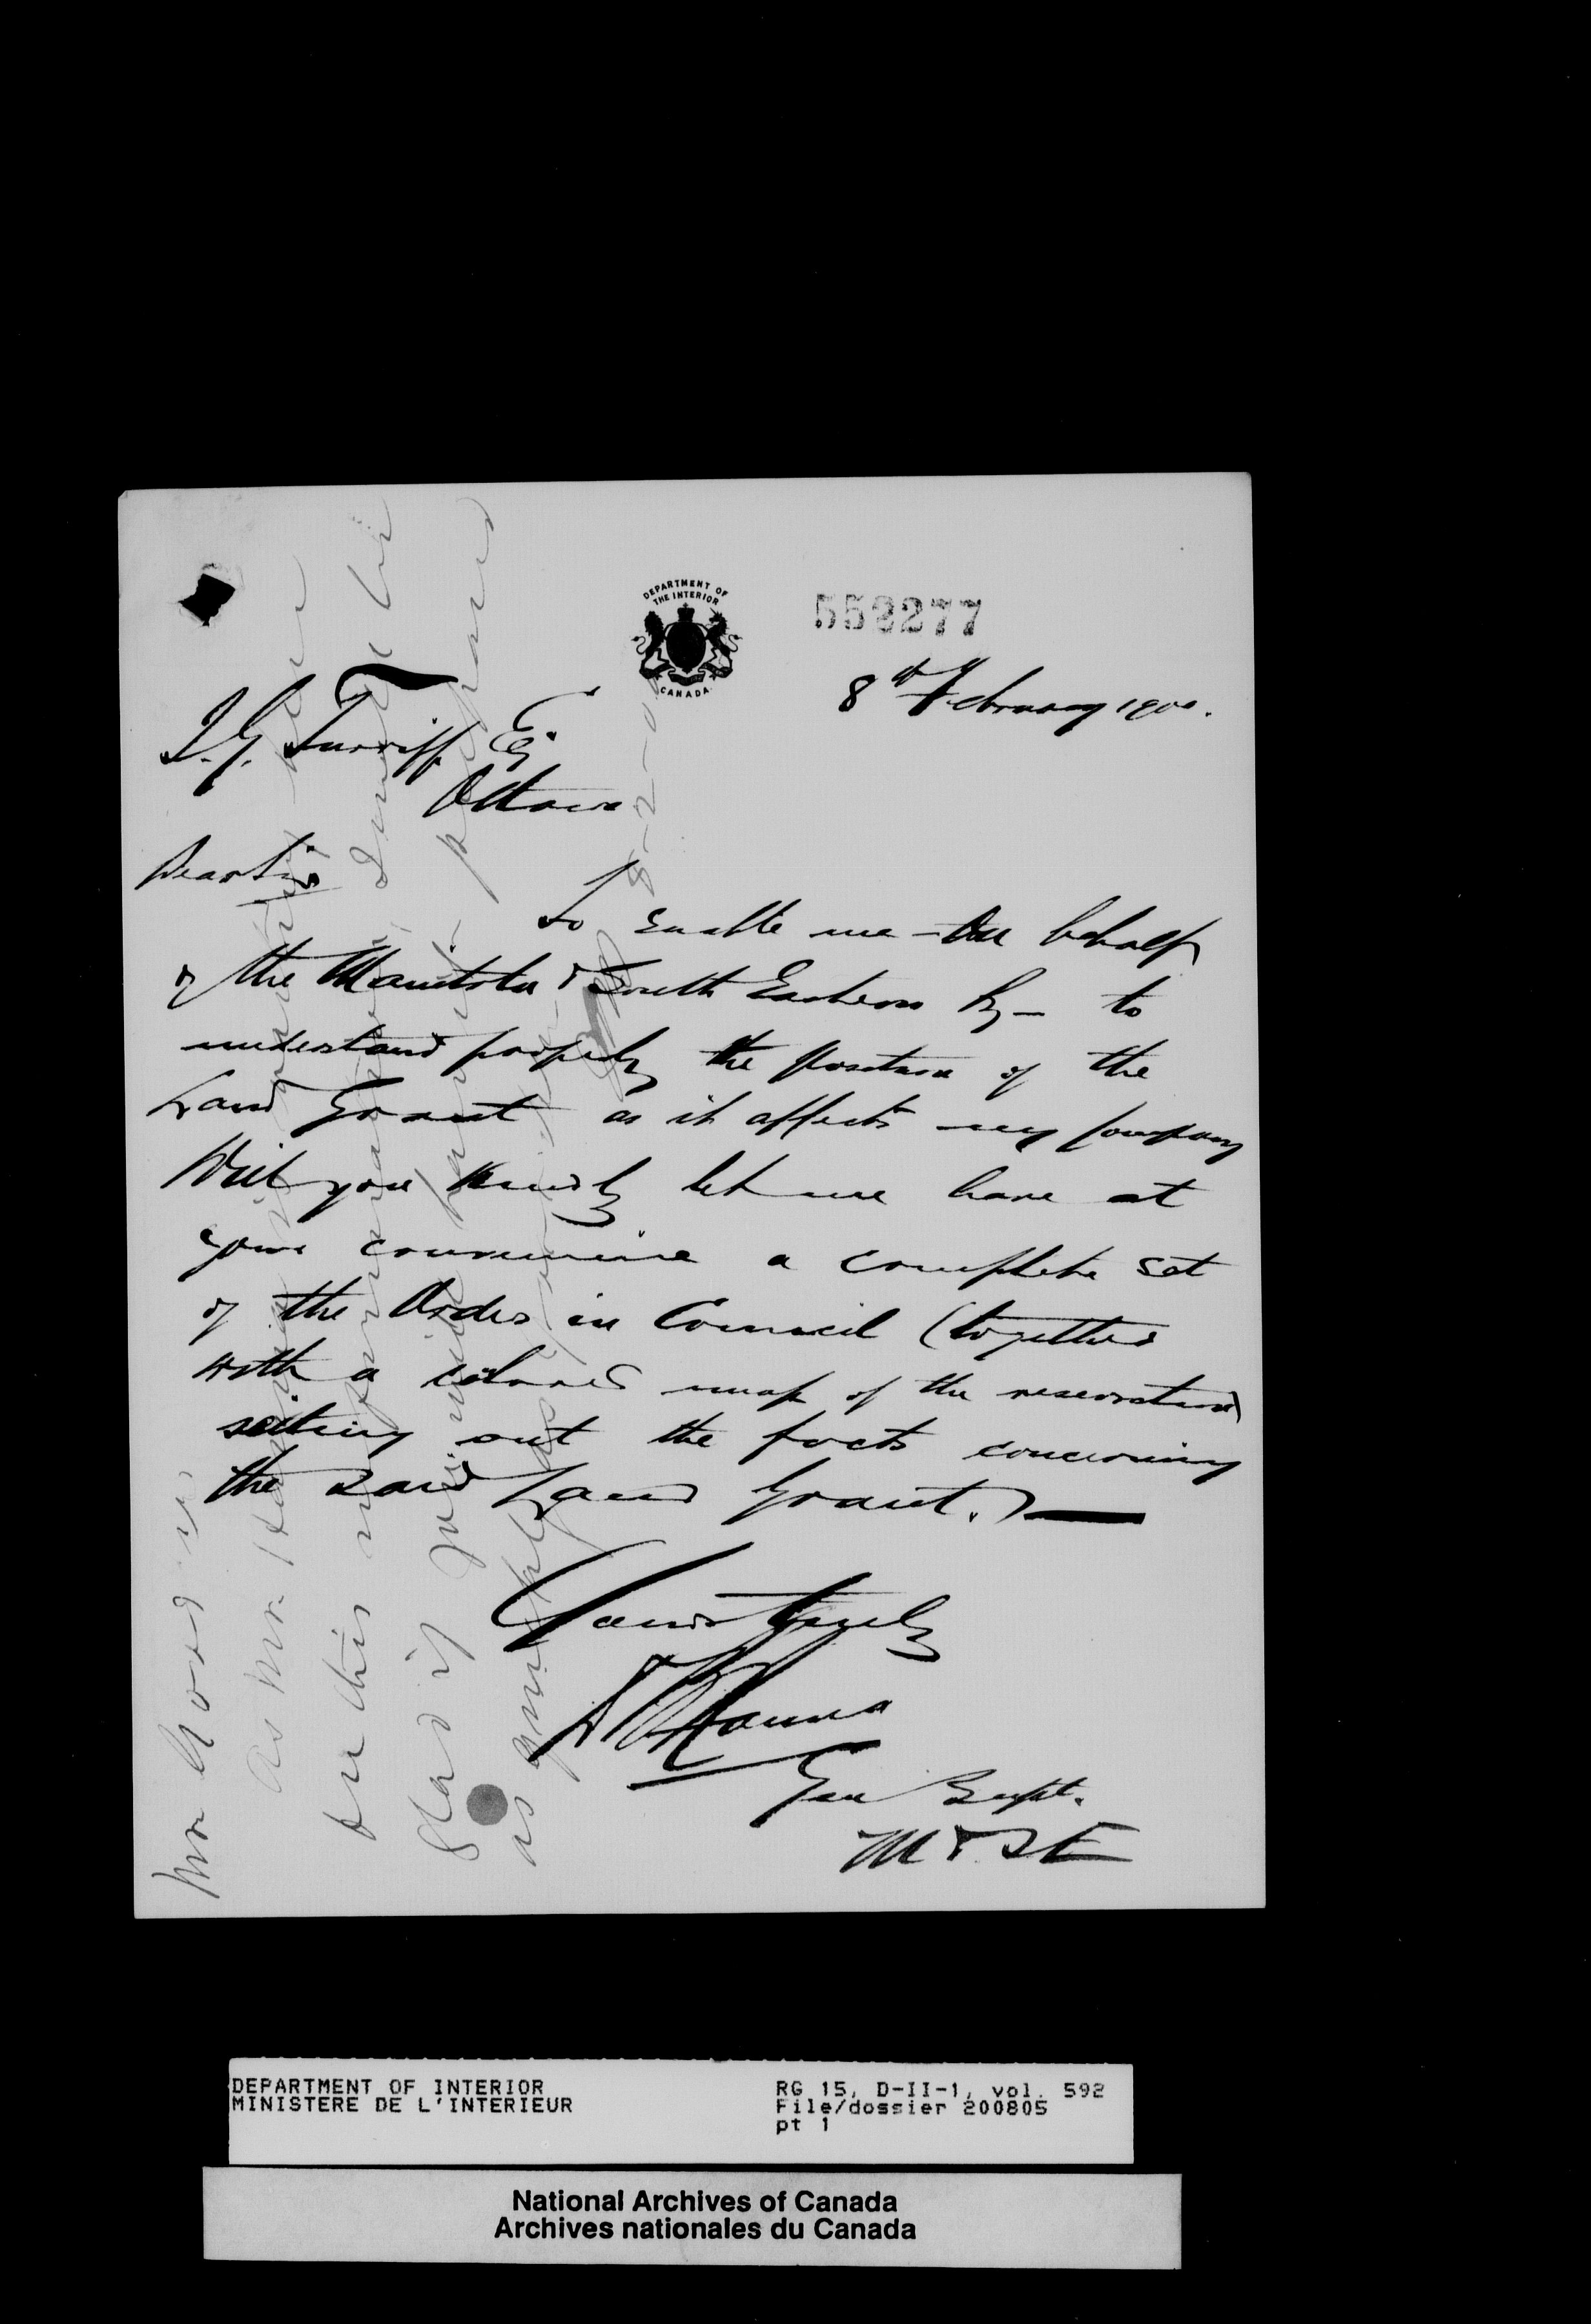 DEPARTMENT OF
THE INTERIOR
CANADA
552277
8th February 1900.
J. G. Turriff Esq
Ottawa
Dear Sir
To enable me - On behalf
of the Manitoba & South Eastern Ry - to
understand properly the position of the
Land Grant as it affects my Company
Will you kindly let me have at
your convenience a complete set
of the Orders in Council (together
with a colored map of the reservation
setting out the facts concerning
the said Land Grant.)
Yours truly
D B Hanna
Gen Supt.
M & SE
as Mr Hanna
on this
glad if you will have it prepared
as quickly as possible
8-2-0
DEPARTMENT OF INTERIOR
MINISTERE DE L'INTERIEUR
RG 15, D-II-1, vol. 592
File/dossier 200805
pt 1
National Archives of Canada
Archives nationales du Canada